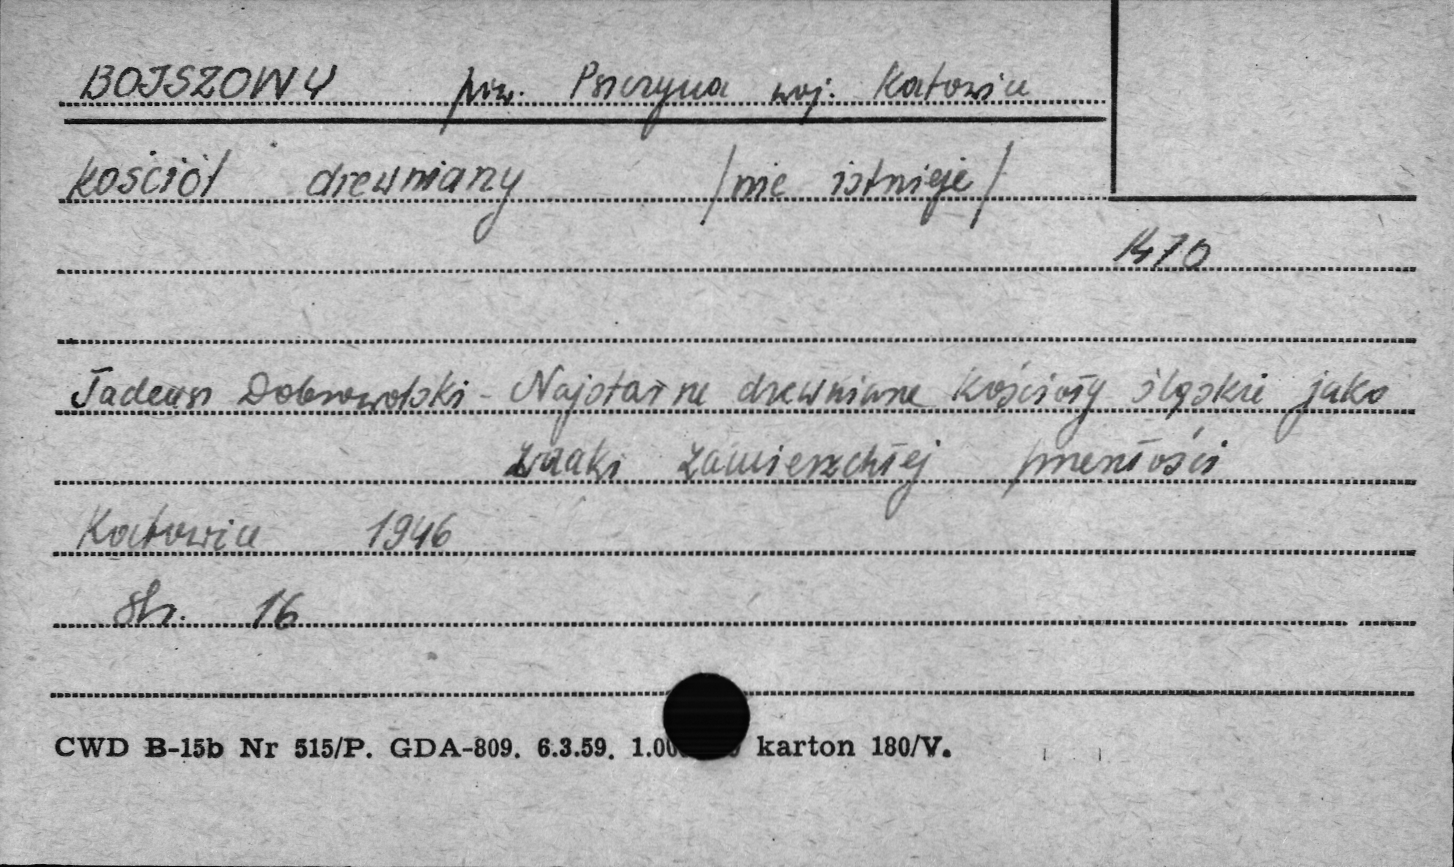 BOJSZOWY pow. Pszczyna woj. Katowice
kościół drewniany /nie istnieje/
1470
Tadeusz Dobrowolski - Najstarsze drewniane kościoły śląskie jako
znaki zamierzchłej przeszłości
Katowice 1946
str. 16
CWD B-15b Nr 515/P. GDA-809. 6.3.59. karton 180/V.